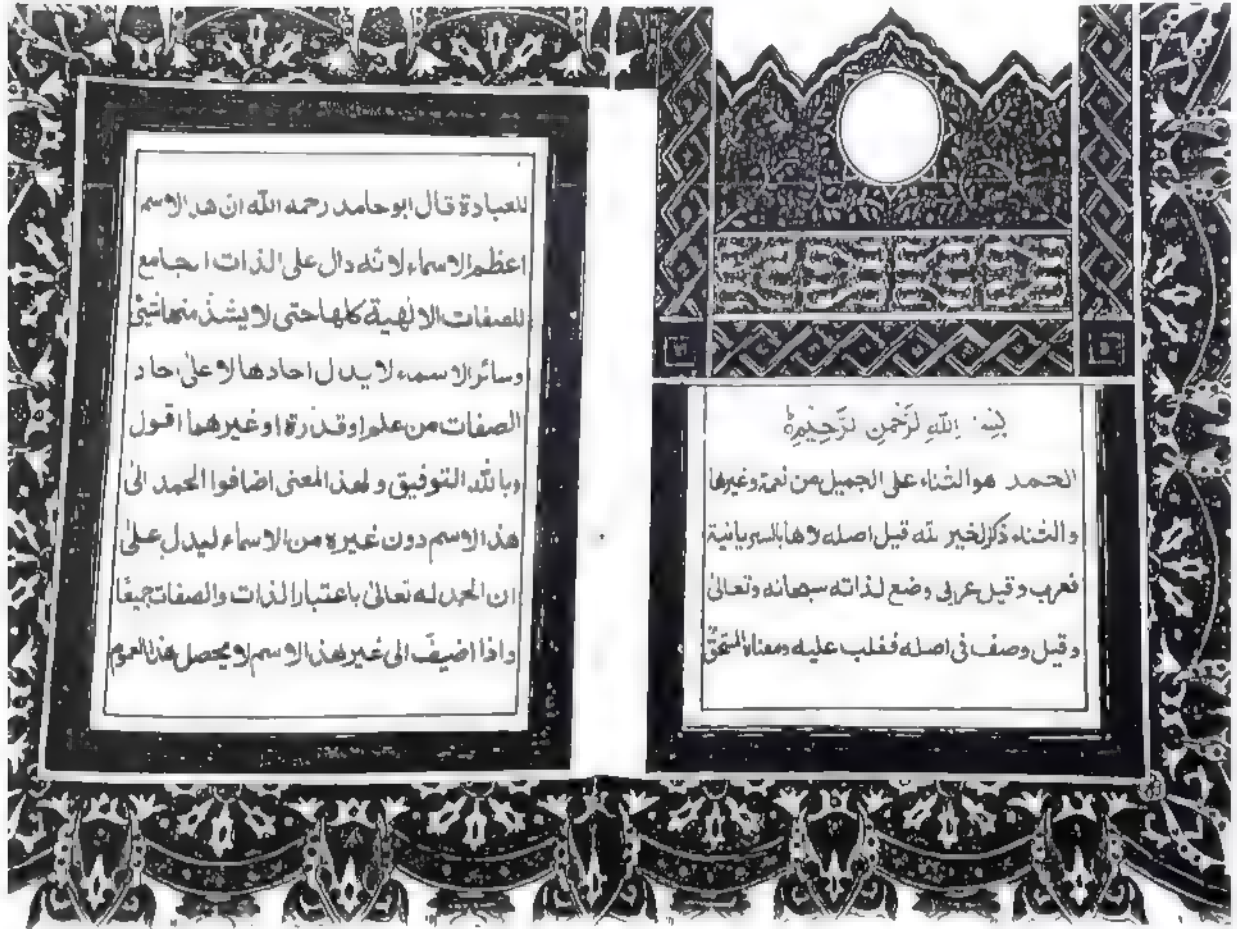 بسم الله الرحمن الرحيم
الحمد هو الثناء على الجميل من نعمة وغيرها
والثناء ذكر لخير لله قيل اصله لاها بالسريانية
فعرب وقيل عربي وضع لذاته سبحانه وتعالى
وقيل وصف في اصله فغلب عليه ومعناه المستحق
للعبادة قال ابو حامد رحمه الله ان هذ الاسم
اعظم الاسماء لانه دال على الذات الجامع
للصفات الالهية كلها حتى لا يشذ منها شئ
وسائر الاسماء لا يدل احادها الا على احاد
الصفات من علم او قدرة او غيرهما اقول
وبالله التوفيق ولهذ المعنى اضافوا الحمد الى
هذ الاسم دون غيره من الاسماء ليدل على
ان الحمد له تعالى باعتبار الذات والصفات جميعًا
واذا اضيف الى غير هذ الاسم لا يحصل هذ العموم